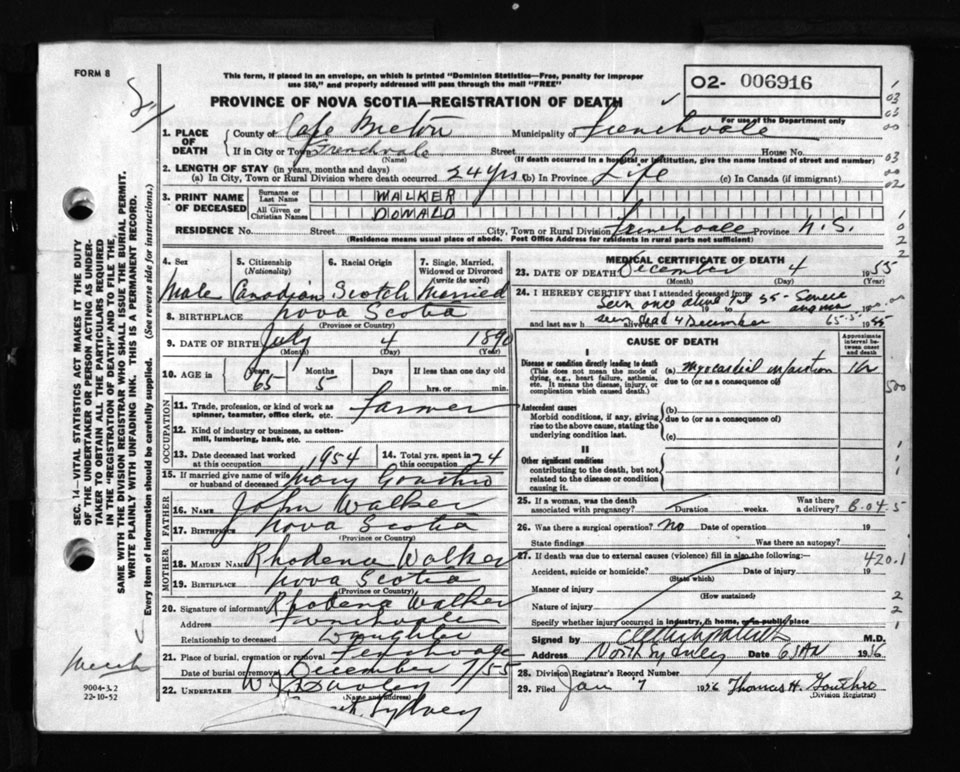 FORM 8
This form, if placed in an envelope, on which is printed "Dominion Statistics—Free, penalty for improper
use $50," and properly addressed will pass through the mail "FREE"
02- 006916
PROVINCE OF NOVA SCOTIA—REGISTRATION OF DEATH
For use of the Department only
1. PLACE OF DEATH
County of Cape Breton Municipality of Frenchvale
If in City or Town Frenchvale Street House No.
(Name) (If death occurred in a hospital or institution, give the name instead of street and number)
2. LENGTH OF STAY (in years, months and days)
(a) In City, Town or Rural Division where death occurred 24 yrs (b) In Province Life (c) In Canada (if immigrant)
3. PRINT NAME OF DECEASED
Surname or Last Name WALKER
All Given or Christian Names DONALD
RESIDENCE No. Street City, Town or Rural Division Frenchvale Province N.S.
(Residence means usual place of abode. Post Office Address for residents in rural parts not sufficient)
4. Sex 5. Citizenship (Nationality) 6. Racial Origin 7. Single, Married, Widowed or Divorced (write the word)
Male Canadian Scotch Married
8. BIRTHPLACE Nova Scotia
(Province or Country)
9. DATE OF BIRTH July 4 1890
(Month) (Day) (Year)
10. AGE in Years Months Days If less than one day old
65 5 hrs. or min.
OCCUPATION
11. Trade, profession, or kind of work as spinner, teamster, office clerk, etc. Farmer
12. Kind of industry or business, as cotton-mill, lumbering, bank, etc.
13. Date deceased last worked at this occupation 1954 14. Total yrs. spent in this occupation 24
15. If married give name of wife or husband of deceased Mary
FATHER
16. NAME John Walker
17. BIRTHPLACE Nova Scotia
(Province or Country)
MOTHER
18. MAIDEN NAME Rhodena Walker
19. BIRTHPLACE Nova Scotia
(Province or Country)
20. Signature of informant Rhodena Walker
Address Frenchvale
Relationship to deceased Daughter
21. Place of burial, cremation or removal Frenchvale
Date of burial or removal December 7/55
22. UNDERTAKER W. J.
(Name and address)
Sydney
MEDICAL CERTIFICATE OF DEATH
23. DATE OF DEATH December 4 1955
(Month) (Day) (Year)
24. I HEREBY CERTIFY that I attended deceased from
seen once alive 55 - Severe
and last saw h alive on seen dead 4 December 1955
CAUSE OF DEATH
Approximate interval between onset and death
I
Disease or condition directly leading to death
(This does not mean the mode of dying, e.g., heart failure, asthenia, etc. It means the disease, injury, or complication which caused death.)
(a) Myocardial infarction
due to (or as a consequence of)
Antecedent causes
Morbid conditions, if any, giving rise to the above cause, stating the underlying condition last.
(b)
due to (or as a consequence of)
(c)
II
Other significant conditions
contributing to the death, but not related to the disease or condition causing it.
25. If a woman, was the death associated with pregnancy? Duration weeks. Was there a delivery?
26. Was there a surgical operation? No Date of operation 19
State findings Was there an autopsy?
27. If death was due to external causes (violence) fill in also the following:—
420.1
Accident, suicide or homicide? Date of injury 19
(State which)
Manner of injury
(How sustained)
Nature of injury
Specify whether injury occurred in industry, in home, or in public place
Signed by M.D.
Address North Sydney Date 6 JAN 1956
28. Division Registrar's Record Number
29. Filed Jan 7 1956 Thomas H. Gouthro
(Division Registrar)
SEC. 14—VITAL STATISTICS ACT MAKES IT THE DUTY
OF THE UNDERTAKER OR PERSON ACTING AS UNDER-
TAKER TO OBTAIN ALL THE PARTICULARS REQUIRED
IN THE "REGISTRATION OF DEATH" AND TO FILE THE
SAME WITH THE DIVISION REGISTRAR WHO SHALL ISSUE THE BURIAL PERMIT.
WRITE PLAINLY WITH UNFADING INK. THIS IS A PERMANENT RECORD.
Every item of information should be carefully supplied. (See reverse side for instructions.)
9004-3.2
22-10-52